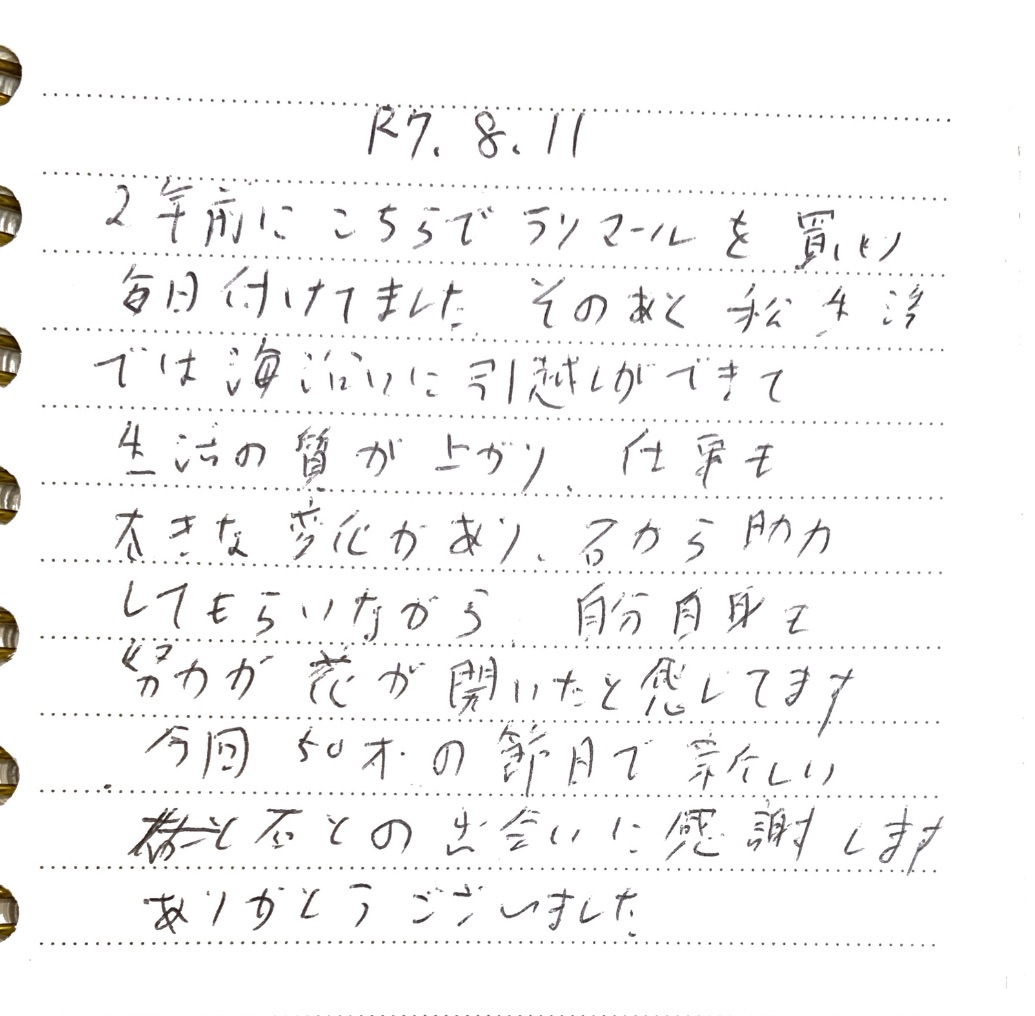 R7.8.11
2年前にこちらでラリマールを買い
毎日付けてました。そのあと私生活
では海沿いに引越しができて
生活の質が上がり、仕事も
大きな変化があり、石から助力
してもらいながら、自分自身も
努力が花が開いたと感じてます
今回50才の節目で新しい
石との出会いに感謝します
ありがとうございました